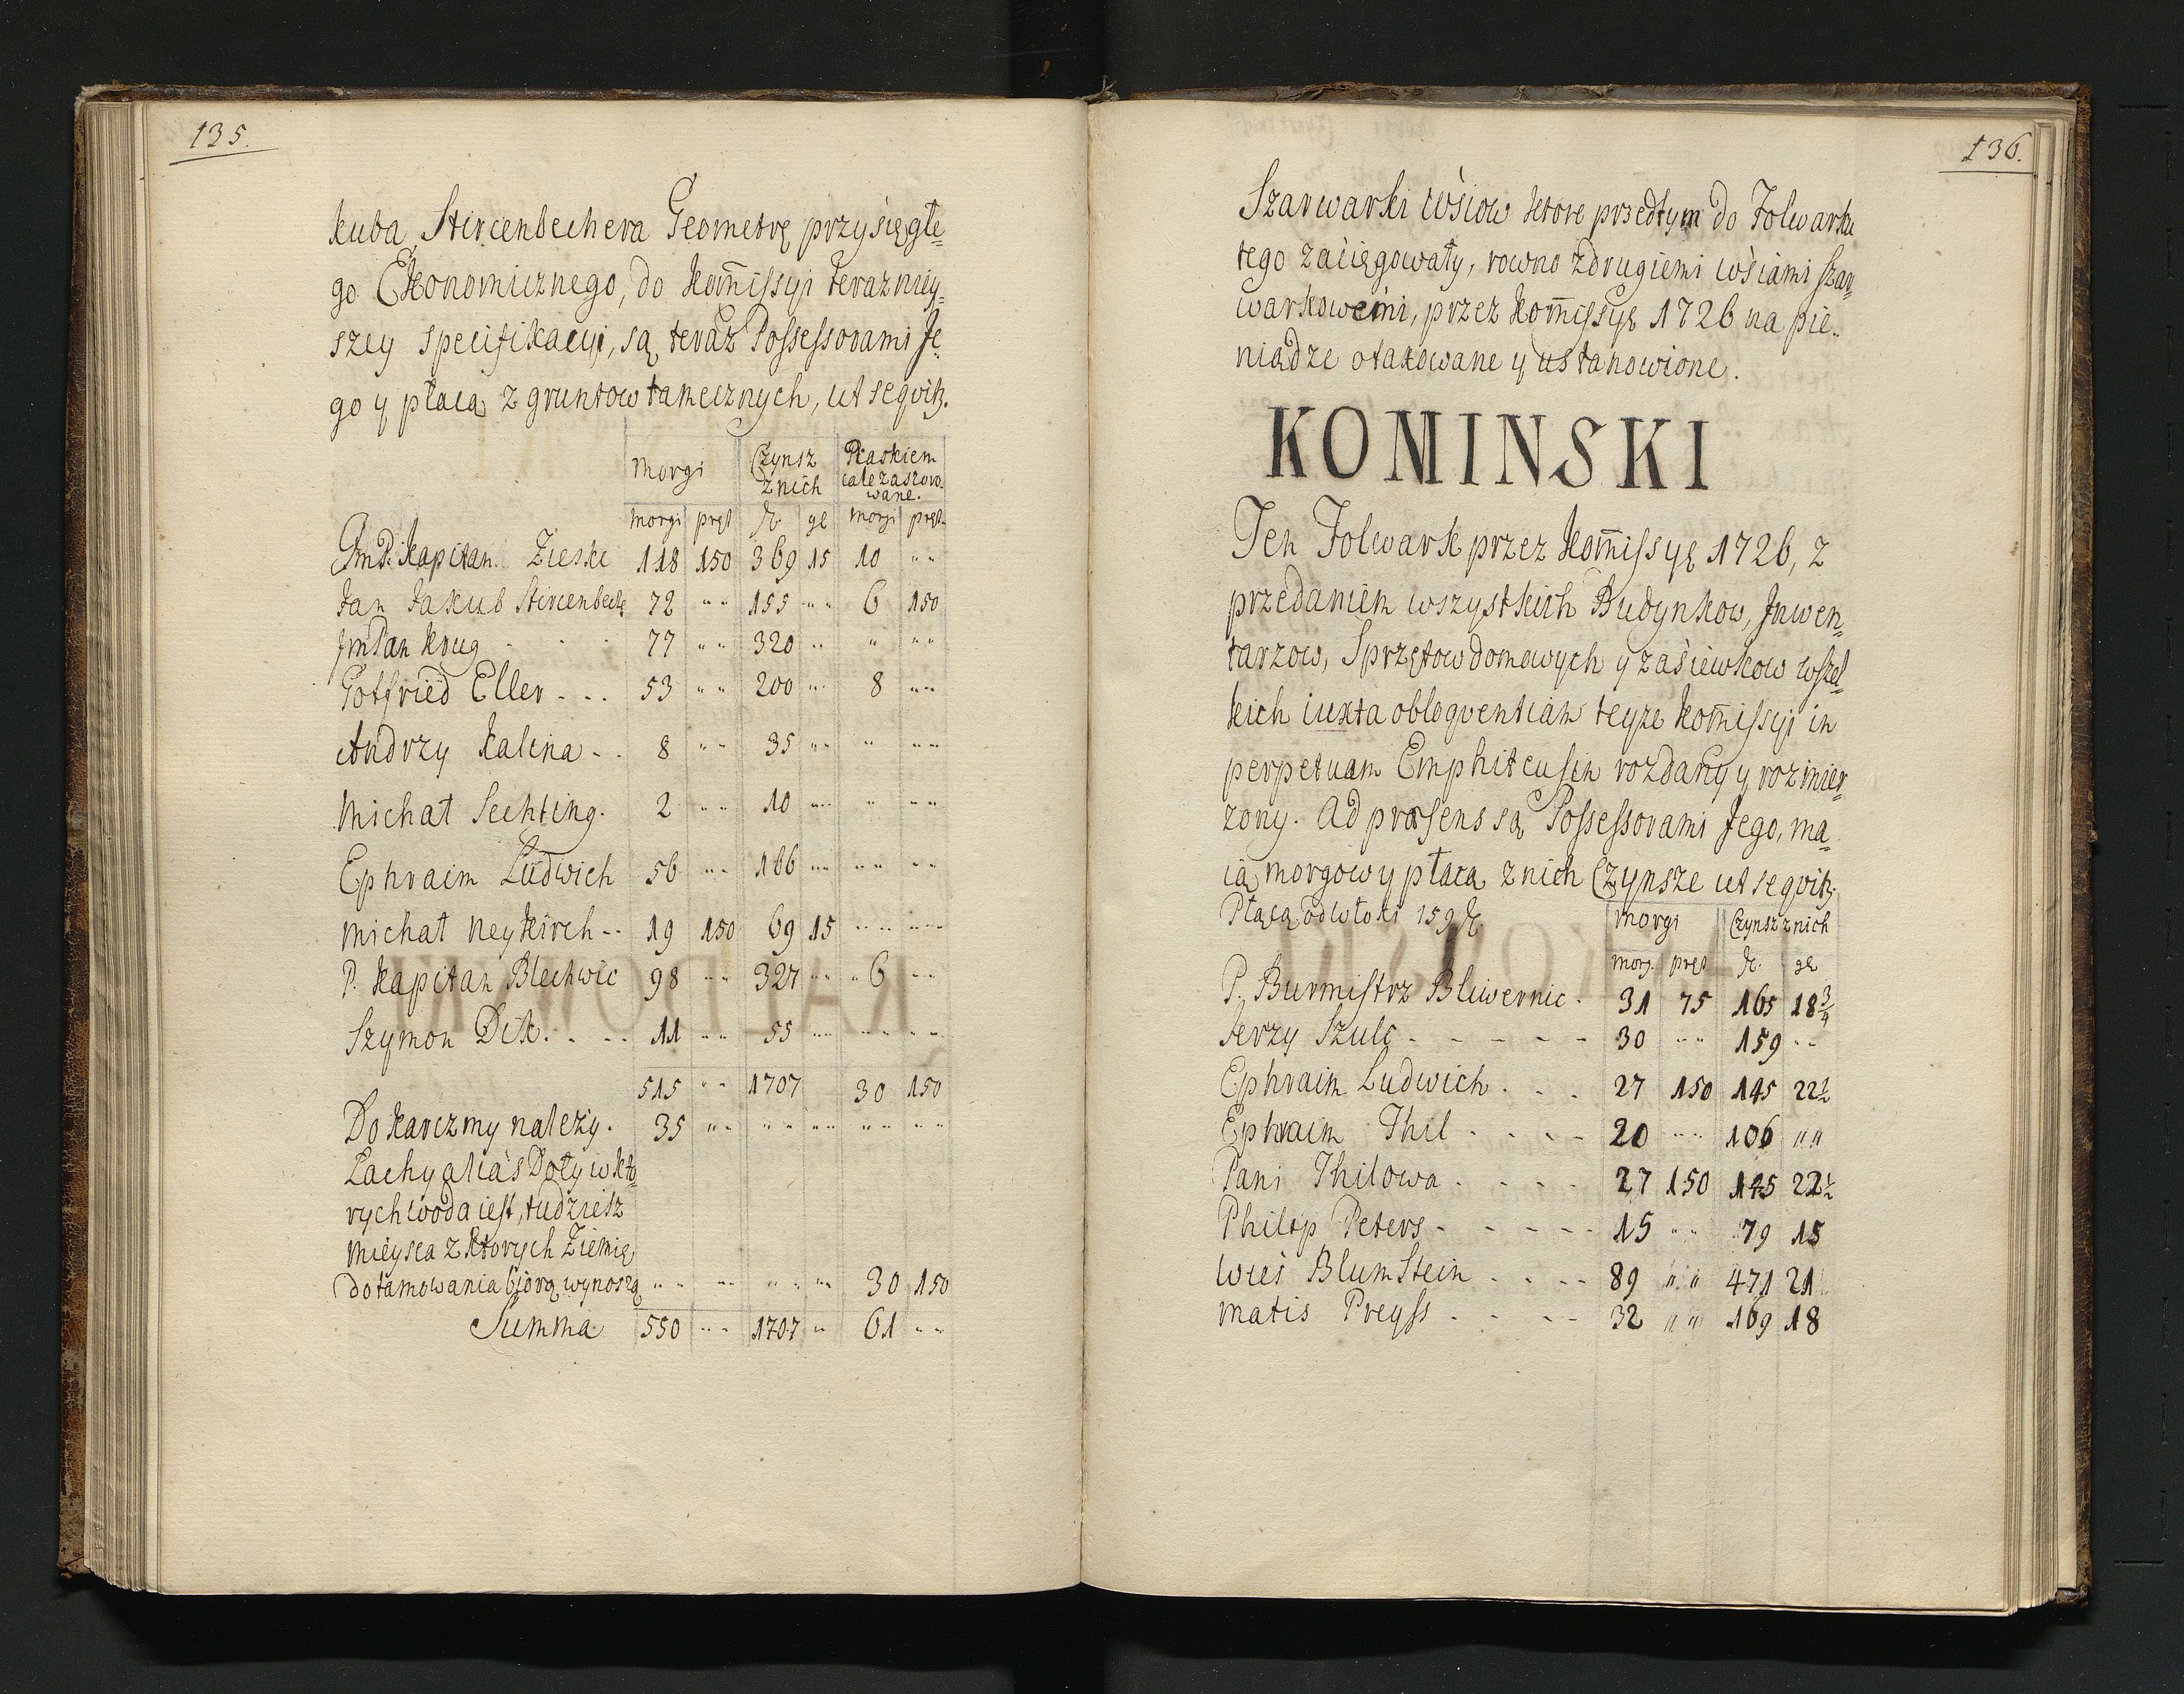 135.
kuba Stircenbechera Geometrę przysięgłe=
go Ekonomicznego, do Kom̄issyi teraznıey=
szey specifikacyi, są teraz Possessorami Je=
go y płacą z gruntow tamecznych, ut seqvit.
morgi Czynsz z nich Piaskiem całe zaszoro. wane.
morgi pręt gł morgi pręt.
JmP. Kapitan Zieski 118 150 369 15 10 " "
Jan Jakub Stircenbech 72 " " 155 " " 6 150
JmPan Krug 77 " " 320 " " " " "
Gotfried Eller - . . 53 " " 200 " " 8 " "
Andrzy Kalina - . 8 " " 35 " " " " "
Michał Sechting. 2 " " 10 " " " " "
Ephraim Ludwich 56 " " 166 " " " " " "
Michał Neykirch - - 19 150 69 15 " " " "
P. Kapitan Blechwic 98 " " 327 " " " 6 " "
Szymon Dik. . . . 11 " " 55 " " " " " "
515 " " 1707 30 150
Do Karczmy nalezy. 35 " " " " " " " " " "
Lachy alias Doły w kto=
rych woda iest, tudziesz
mieysca z ktorych Ziemię
do tamowania biorą wynoszą " " " " " " " " 30 150
Summa 550 " " 1707 " 61 " "
136.
Szarwarki wsiow ktore przedtym do Folwarku
tego zaciągowały, rowno z drugiemi wsiami szar=
warkowemi, przez Kom̄issyę 1726 na pie=
niądze otaxowane y ustanowione.
KOMINSKI
Ten Folwark przez Kom̄issyę 1726, z
przedaniem wszystkich Budynkow, Jnwen=
tarzow, Sprzętow domowych y zasiewkow wszel=
kich iuxta obloqventiam teyze Kom̄issyi in
perpetuam Emphiteusin rozdany y rozmier=
zony. Ad præsens są Possessorami Jego, ma=
ią morgow y płacą z nich Czynsze ut seqvit.
Płacą od włoki 159
morgi Czynsz z nich
morg. pręt gł
P. Burmistrz Bliwernic . 31 75 165 18 3/4
Jerzy Szulc - - - - - 30 " " 159 " "
Ephraim Ludwich . . . 27 150 145 22 1/2
Ephraim Thil . . . - 20 " " 106 " "
Pani Thilowa . . . . 27 150 145 22 1/2
Philip Peters - - - - - 15 " " 79 15
Wies BlumStein . . . - 89 " " 471 21
Matis Preyss . . - - 32 " " 169 18